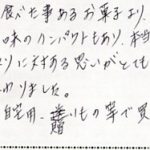 食べた事あるお菓子より、
味のインパクトもあり、本当
りに対する思いがとても
わりました。
自宅用、贈りもの等で買